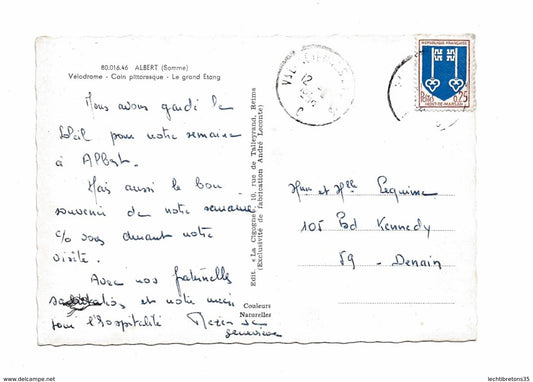 80.016.46 ALBERT (Somme)
Vélodrome - Coin pittoresque - Le grand Etang
Nous avons gardé le
soleil pour notre semaine
à Albert.
Mais aussi le bon
souvenir de notre semaine
c/o vous durant notre
visite.
Avec nos fraternelles
et notre merci
pour l'hospitalité
Geneviève
Edit. "La Cigogne", 10, rue de Talleyrand, Reims
(Exclusivité de fabrication André Leconte)
Couleurs
Naturelles
REPUBLIQUE FRANÇAISE
POSTES
0,25
MONT-DE-MARSAN
12
et Lequime
105 Bd Kennedy
59 - Denain
akpool.de
lechtibretons35